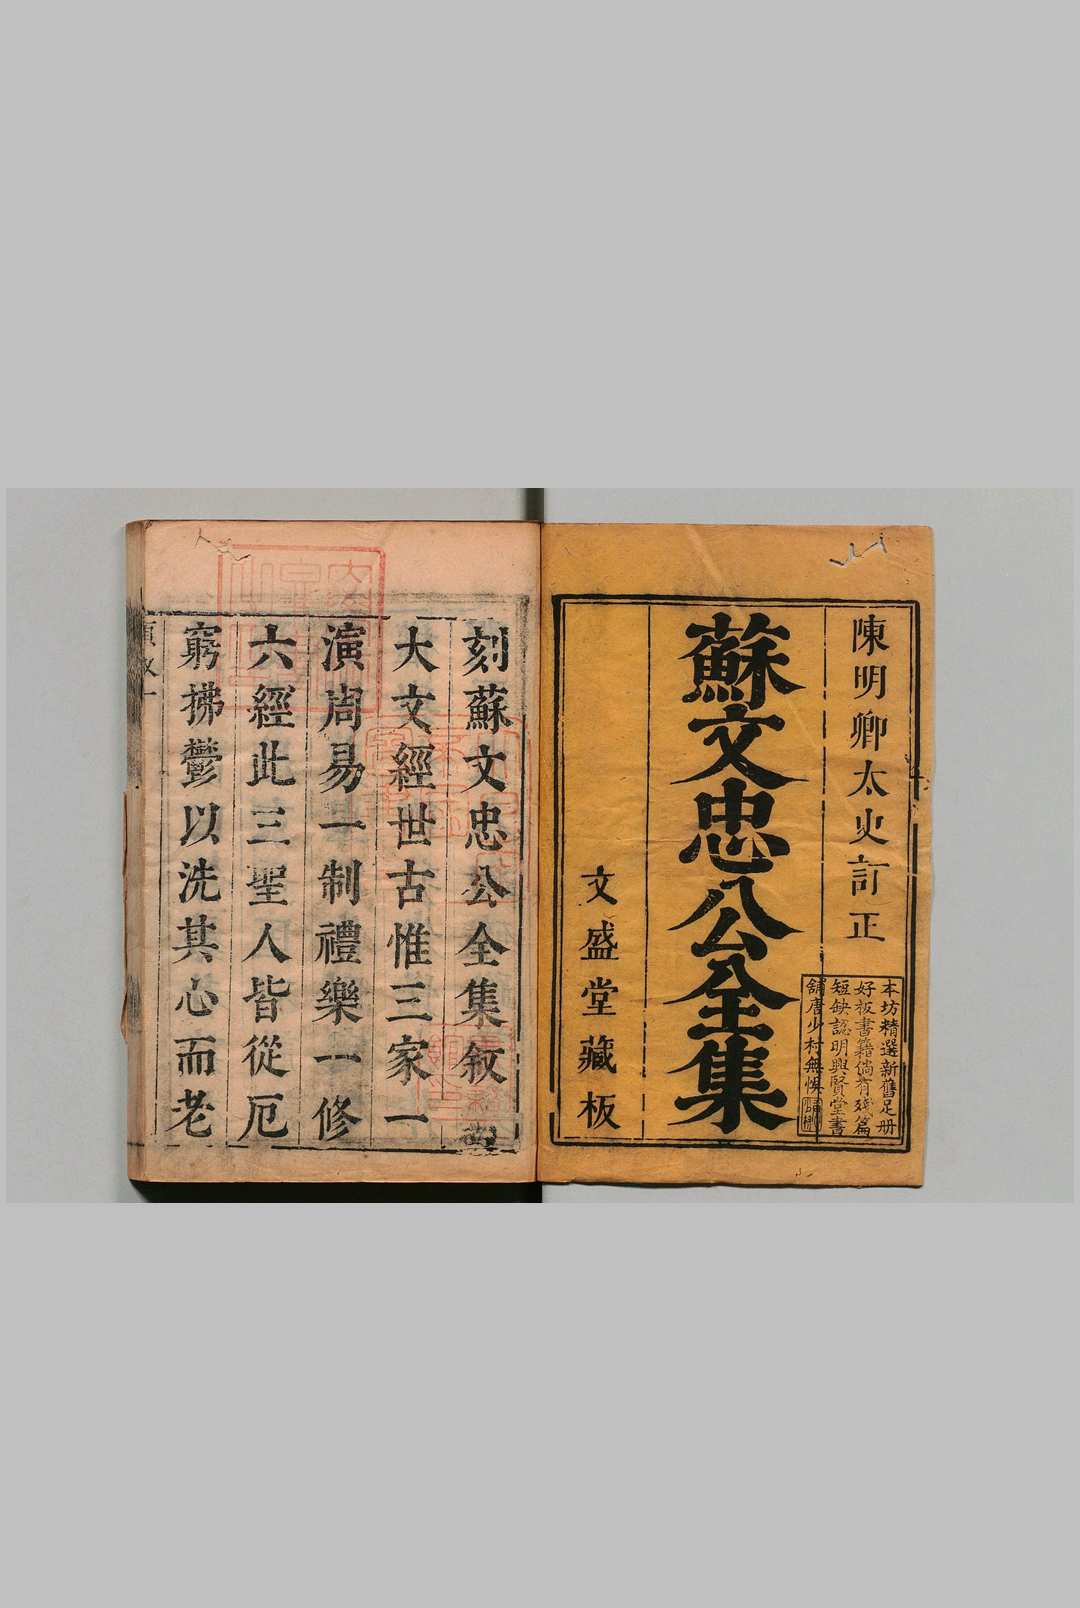 陳明卿太史訂正
本坊精選新舊足冊
好板書籍倘有殘篇
短缺認明興賢堂書
舖唐少村無悞
蘇文忠公全集
文盛堂藏板
刻蘇文忠公全集敘
大文經世古惟三家一
演周易一制禮樂一修
六經此三聖人皆從厄
窮拂鬱以洗其心而老